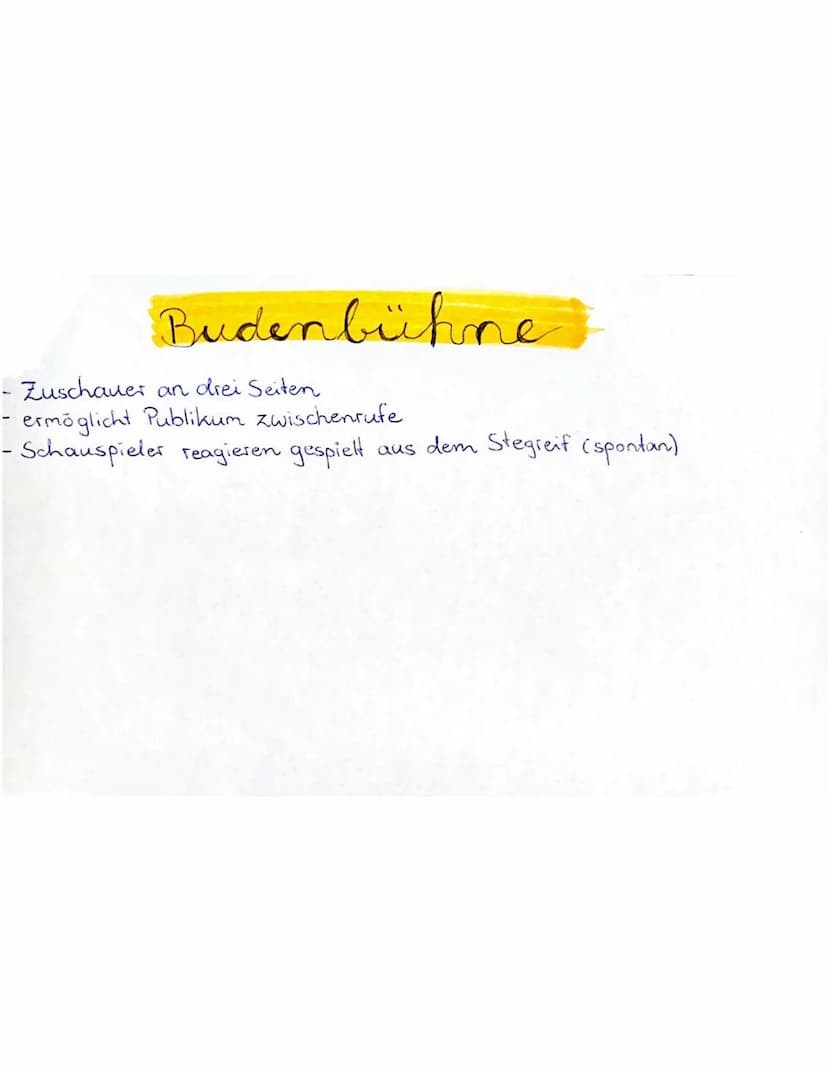 Budenbühne
- Zuschauer an drei Seiten
- ermöglicht Publikum zwischenrufe
- Schauspieler reagieren gespielt aus dem Stegreif (spontan)